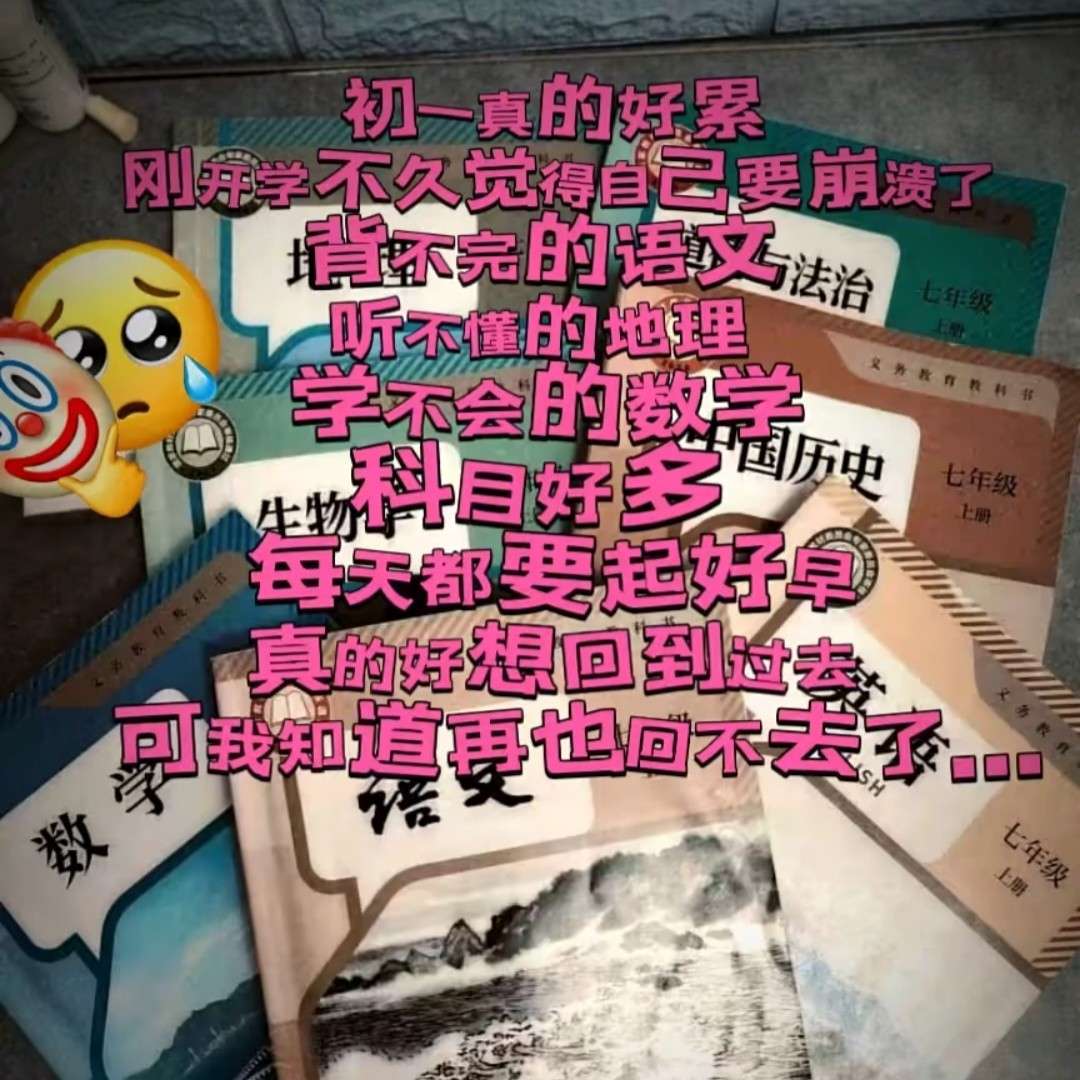 初一真的好累
刚开学不久觉得自己要崩溃了
背不完的语文
听不懂的地理
学不会的数学
科目好多
每天都要起好早
真的好想回到过去
可我知道再也回不去了...
与法治
七年级
上册
义务教育教科书
中国历史
七年级
上册
生物学
义务教育教科书
数学
语文
义务教育
七年级
上册